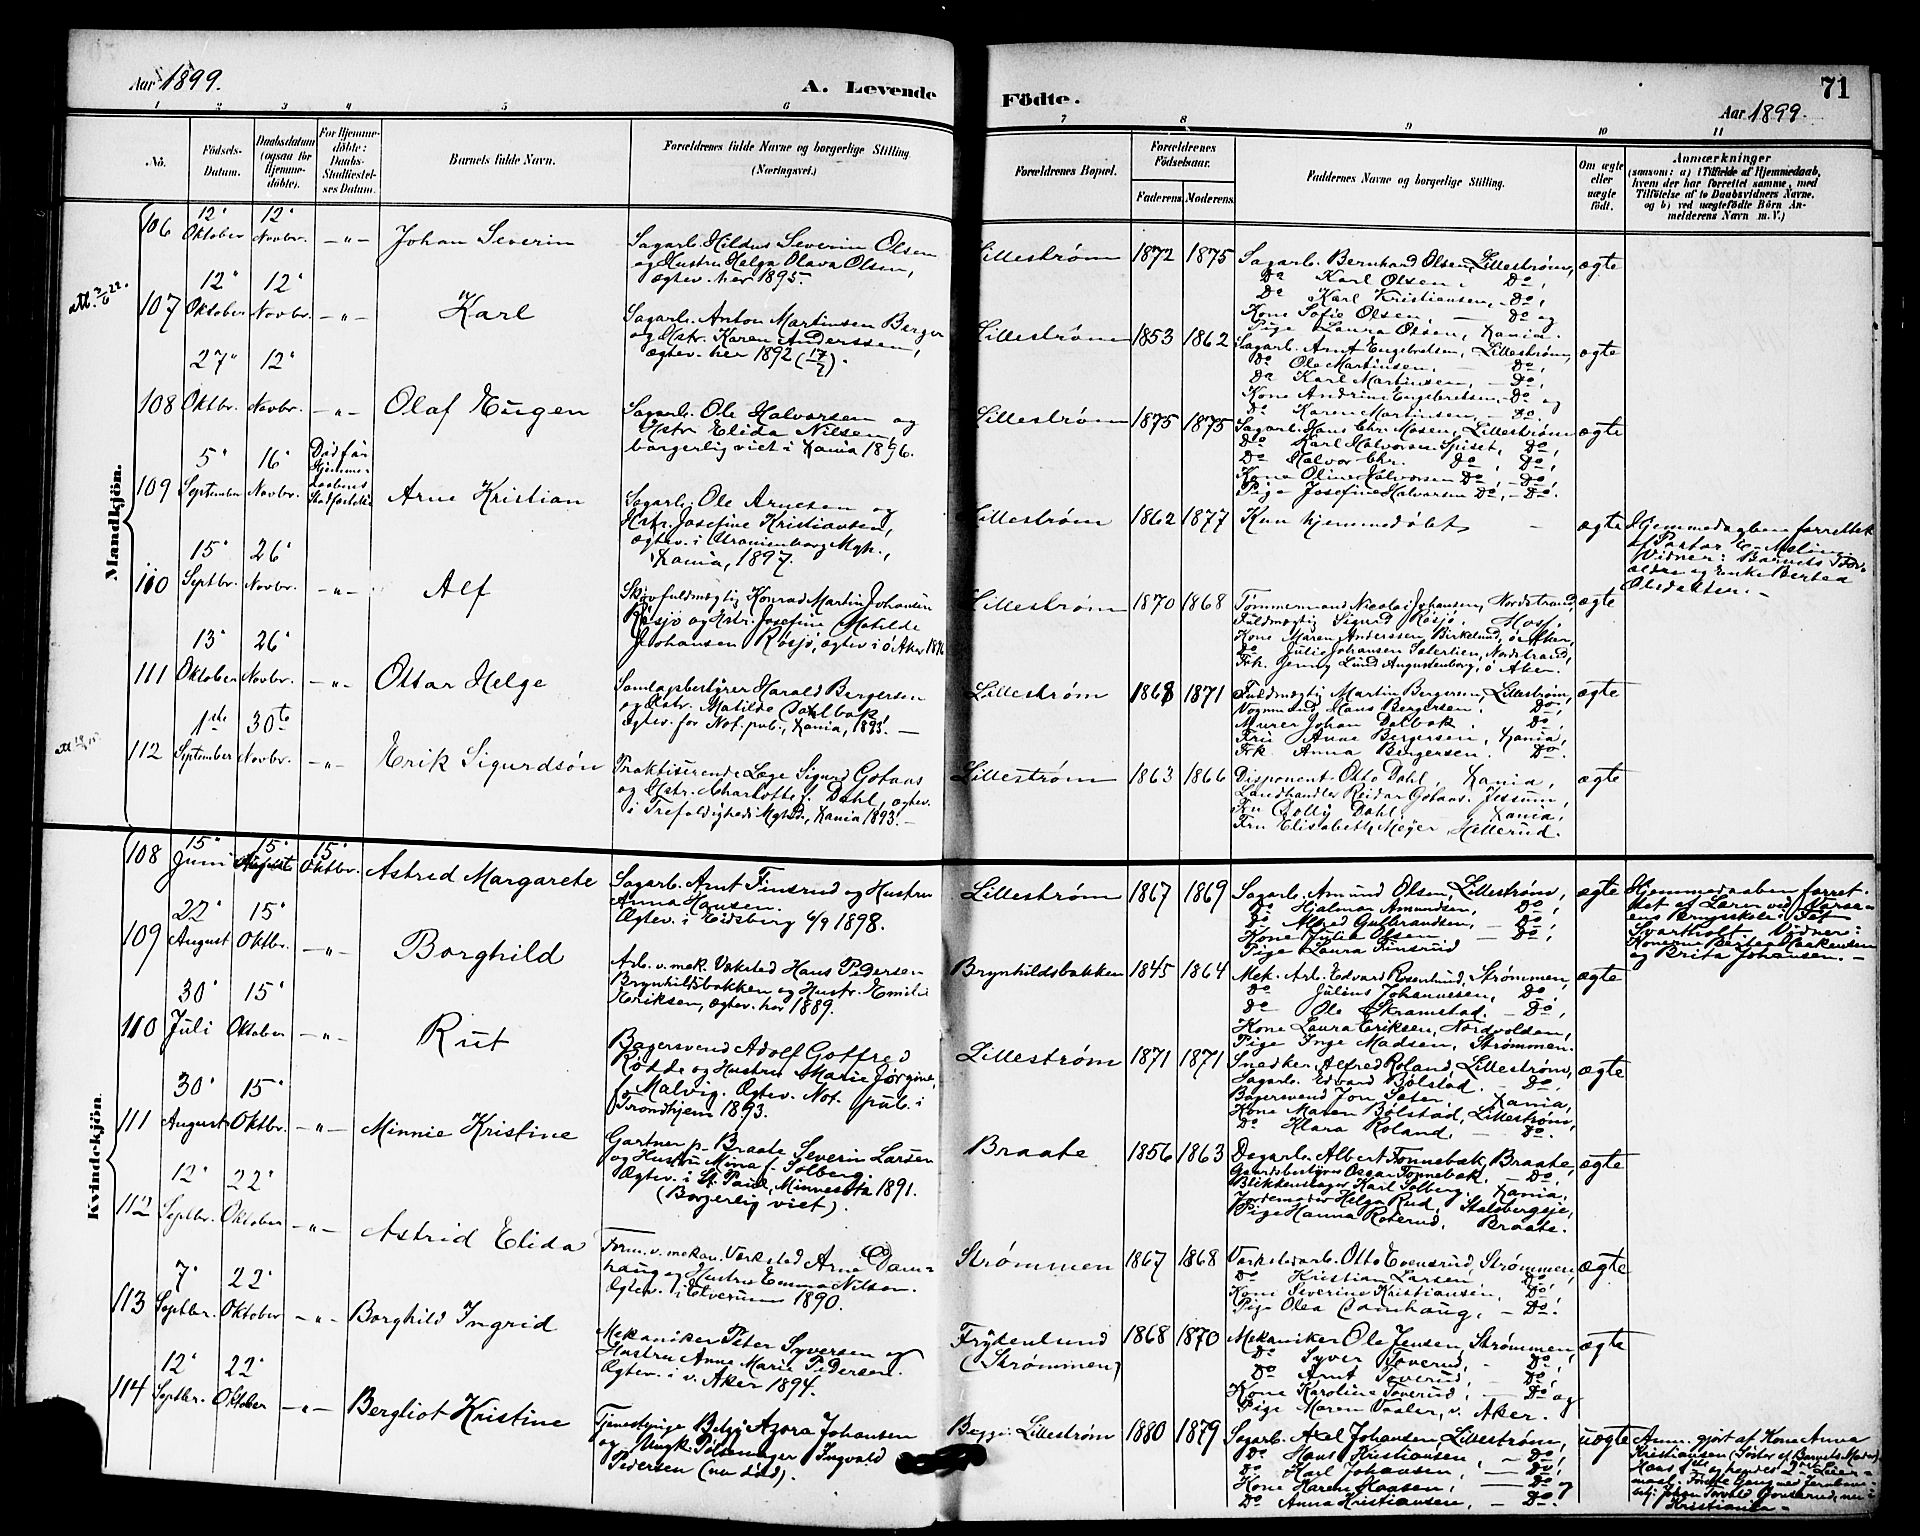 Aar 1899.
A. Levende
Födte.
71
Aar 1899.
1 2 3 4 5 6 7 8 9 10 11
No.
Födsels-
Datum.
Daabsdatum
(ogsaa for
Hjemme-
döbte).
For Hjemme-
döbte:
Daabs-
Stadfæstel-
ses Datum.
Barnets fulde Navn.
Forældrenes fulde Navne og borgerlige Stilling
(Næringsvei.)
Forældrenes Bopæl.
Forældrenes
Födselsaar.
Faderens Moderens
Faddernes Navne og borgerlige Stilling.
Om ægte
eller
uægte
født.
Anmærkninger
(saasom: a) i Tilfælde af Hjemmedaab,
hvem der har forrettet samme, med
Tilföielse af to Daabsvidners Navne.
og b) ved uægtefödte Börn An-
melderens Navn m. V.)
Mandkjön.
106
12'
Oktober
12'
Novbr.
Johan Severin
Sagarb. Hildus Severin Olsen
og Hustru Helga Olava Olsen,
Ægtev. her 1895.
Lillestrøm
1872 1875
Sagarb. Bernhard Olsen, Lillestrøm,
Do Karl Olsen, Do,
Do Karl Kristiansen, - Do,
Kone Sofie Olsen, - Do og
Pige Laura Olsen, Xania.
ægte
107
12'
Oktober
12'
Novbr.
Karl
Sagarb. Anton Martinsen Berger
og Hstr. Karen Anderssen,
Ægtev. her 1892 (17/7).
Lillestrøm
1853 1862
Sagarb. Arnt Engebretsen, Lillestrøm,
Do Ole Martinsen, - Do,
Do Karl Martinsen, - Do,
Kone Andrine Engebretsen, - Do og
Do Karen Martinsen, - Do.
ægte
108
27'
Oktbr.
12'
Novbr.
Olaf Eugen
Sagarb. Ole Halvorsen og
Hstr. Elida Nilsen,
borgerlig viet i Xania 1896.
Lillestrøm
1875 1875
Sagarb. Hans Chr. Mosen, Lillestrøm
Do Karl Halvorsen Spiset, Do,
Do Halvor Chr. Do, Do,
Kone Oline Halvorsen Do, - Do,
Pige Josefine Halvorsen Do, - Do.
ægte
109
5'
September
16'
Novbr.
Död för
Hjemme-
daabens
Stadfæstelse
Arne Kristian
Sagarb. Ole Arnesen og
Hstr. Josefine Kristiansen,
ægtev. i Uranienborg Mgh.,
Xania, 1897.
Lillestrøm
1862 1877
Kun hjemmedøbt
ægte
Hjemmedaaben forrettet
af Pastor
Vidner: Barnets For-
ældre og Enke Bertea
Olsdatter. -
110
15'
Septbr.
26'
Novbr.
Alf
Skovfuldmægtig Konrad Martin Johansen
Røsjø og Hstr. Josefine Matilde
Johansen Røsjø, ægtev. i Ö. Aker 1896
Lillestrøm
1870 1868
Tømmermand Nicolai Johansen, Nordstrand,
Fuldmægtig Sigurd Røsjø.
Kone Maren Anderssen, Birkelund, Ö. Aker,
Do Julie Johansen Nordstrand,
Frk. Jenny Lund Augustenborg, Ö. Aker.
ægte
111
13'
Oktober
26'
Novbr.
Ottar Helge
Samlagsbestyrer Harald Bergersen
og Hstr. Matilde Dahlbak,
Ægtev. for Not. pub., Xania, 1893. -
Lillestrøm
1868 1871
Fuldmægtig Martin Bergersen, Lillestrøm,
Vognmand Hans Bergersen. Do,
Murer Johan Dalbak. Do,
Fru Anne Bergersen, Xania,
Frk Anna Bergersen. Do.
ægte
112
1ste
September
30te
Novbr.
Erik Sigurdsön
Praktiserende Læge Sigurd Gotaas
og Hstr. Charlotte f. Dahl, ægtev.
i Trefoldigheds Mgh., Xania 1893. -
Lillestrøm
1863 1866
Disponent Otto Dahl, Xania,
Landhandler Reidar Gotaas, Jessum,
Fru Dolly Dahl, Xania,
Fru Elisabeth Meyer Hellerud.
ægte
Kvindekjön.
108
15'
Juni
15'
August
15'
Oktbr.
Astrid Margarete
Sagarb. Arnt Finsrud og Hustru
Anna Hansen.
Ægtev. i Eidsberg 6/9 1898.
Lillestrøm
1867 1869
Sagarb. Amund Olsen, Lillestrøm,
Do Hjalmar Amundsen, Do,
Do Alfred Gulbrandsen, - Do,
Kone Julie Olsen - Do,
Pige Laura Finsrud
ægte
Hjemmedaaben forret-
tet af Lærer ved
Svarholt. Vidner:
Konerne Bertea Haakensen
og Brita Johansen. -
109
22'
August
15'
Oktbr.
Borghild
Arb. v. mek. Værksted Hans Pedersen
Brynhildsbakken og Hustr. Emilie
Eriksen, ægtev. her 1889.
Brynhildsbakken
1845 1864
Mek. Arb. Edvard Rosenlund, Strømmen,
Do Julius Johannesen, Do,
Do Ole Skramstad. - Do,
Kone Laura Eriksen, Nordvolden,
Pige Inge Madsen, Strømmen.
ægte
110
30'
Juli
15'
Oktober
Rut
Bagersvend Adolf Gotfred
Rödde og Hustru Marie Jörgine,
f. Malvig. Ægtev. Not. pub. i
Trondhjem 1893.
Lillestrøm
1871 1871
Snedker Alfred Roland, Lillestrøm,
Sagarb. Edvard Bølstad. - Do,
Bagersvend Jon Seter, Xania,
Kone Maren Bølstad, Lillestrøm,
Do Klara Roland. - Do.
ægte
111
30'
August
15'
Oktbr.
Minnie Kristine
Gartner p. Braate Severin Larsen
og Hustru Mina f. Solberg.
Ægtev. i St. Paul, Minnesota 1891.
(Borgerlig viet).
Braate
1856 1863
Dagarb. Albert Tonnebæk, Braate,
Gaardsbestyrer Oscar Tonnebæk. - Do,
Blikkenslager Karl Solberg. Xania,
Jordemoder Helga Rud, Stalsbergeje,
Pige Hanna Roterud, Braate.
ægte
112
12'
Septbr.
22'
Oktober
Astrid Elida
Form. v. mekan. Værksted Arne Dam-
haug og Hustru Emma Nilsen.
Ægtev. i Elverum 1890.
Strømmen
1867 1868
Værkstedarb. Otto Evensrud, Strømmen,
Do Kristian Larsen Do,
Kone Severine Kristiansen, Do,
Pige Olea Damhaug, - Do.
ægte
113
7'
Septbr.
22'
Oktober
Borghild Ingrid
Mekaniker Peter Syversen og
Hustru Anne Marie Pedersen.
Ægtev. i V. Aker 1894.
Frydenlund
(Strømmen)
1868 1870
Mekaniker Ole Jensen, Strømmen,
Do Syver Toverud, - Do,
Do Arnt Toverud, - Do,
Kone Karoline Toverud, - Do og
Pige Maren Vaaler, V. Aker.
ægte
114
12'
Septbr.
22'
Oktober
Bergliot Kristine
Tjenestepige Betzy Azora Johansen
og Ungk. Pølsemager Ingvald
Pedersen (nu död).
Begge: Lillestrøm
1880 1879
Sagarb. Axel Johansen, Lillestrøm,
Do Hans Kristiansen, - Do,
Do Karl Johansen, - Do,
Kone Karen Hansen, - Do og
Do Anna Kristiansen, - Do.
uægte
Anm. gjort af Kone Anna
Kristiansen (Søster af Barnets Moder).
Kristiania. -